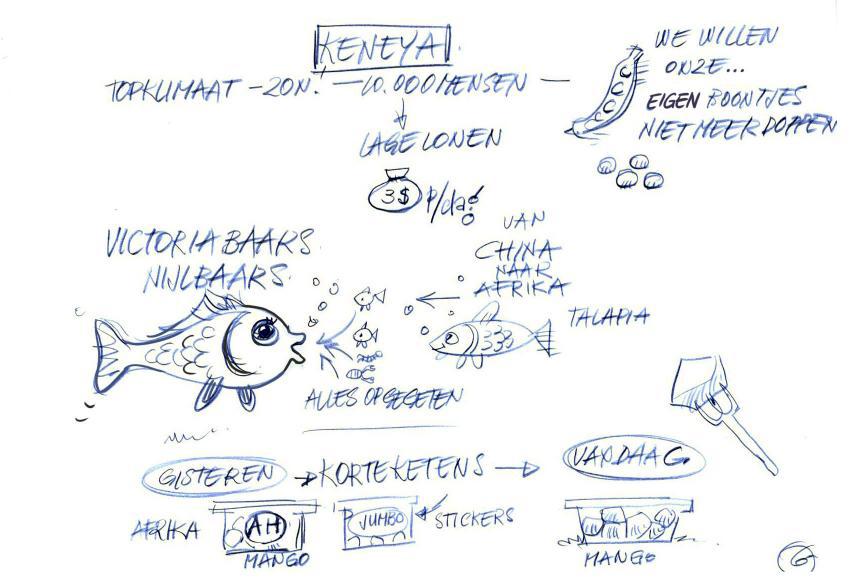 KENEYA!
TOPKLIMAAT - ZON! - 10.000 MENSEN -
LAGE LONEN
3$ p/dag
WE WILLEN
ONZE...
EIGEN BOONTJES
NIET MEER DOPPEN
VICTORIA BAARS
NIJLBAARS.
VAN
CHINA
NAAR
AFRIKA
TALAPIA
ALLES OPGEGETEN
GISTEREN → KORTE KETENS → VANDAAG.
AFRIKA
AH
MANGO
JUMBO
STICKERS
MANGO
6